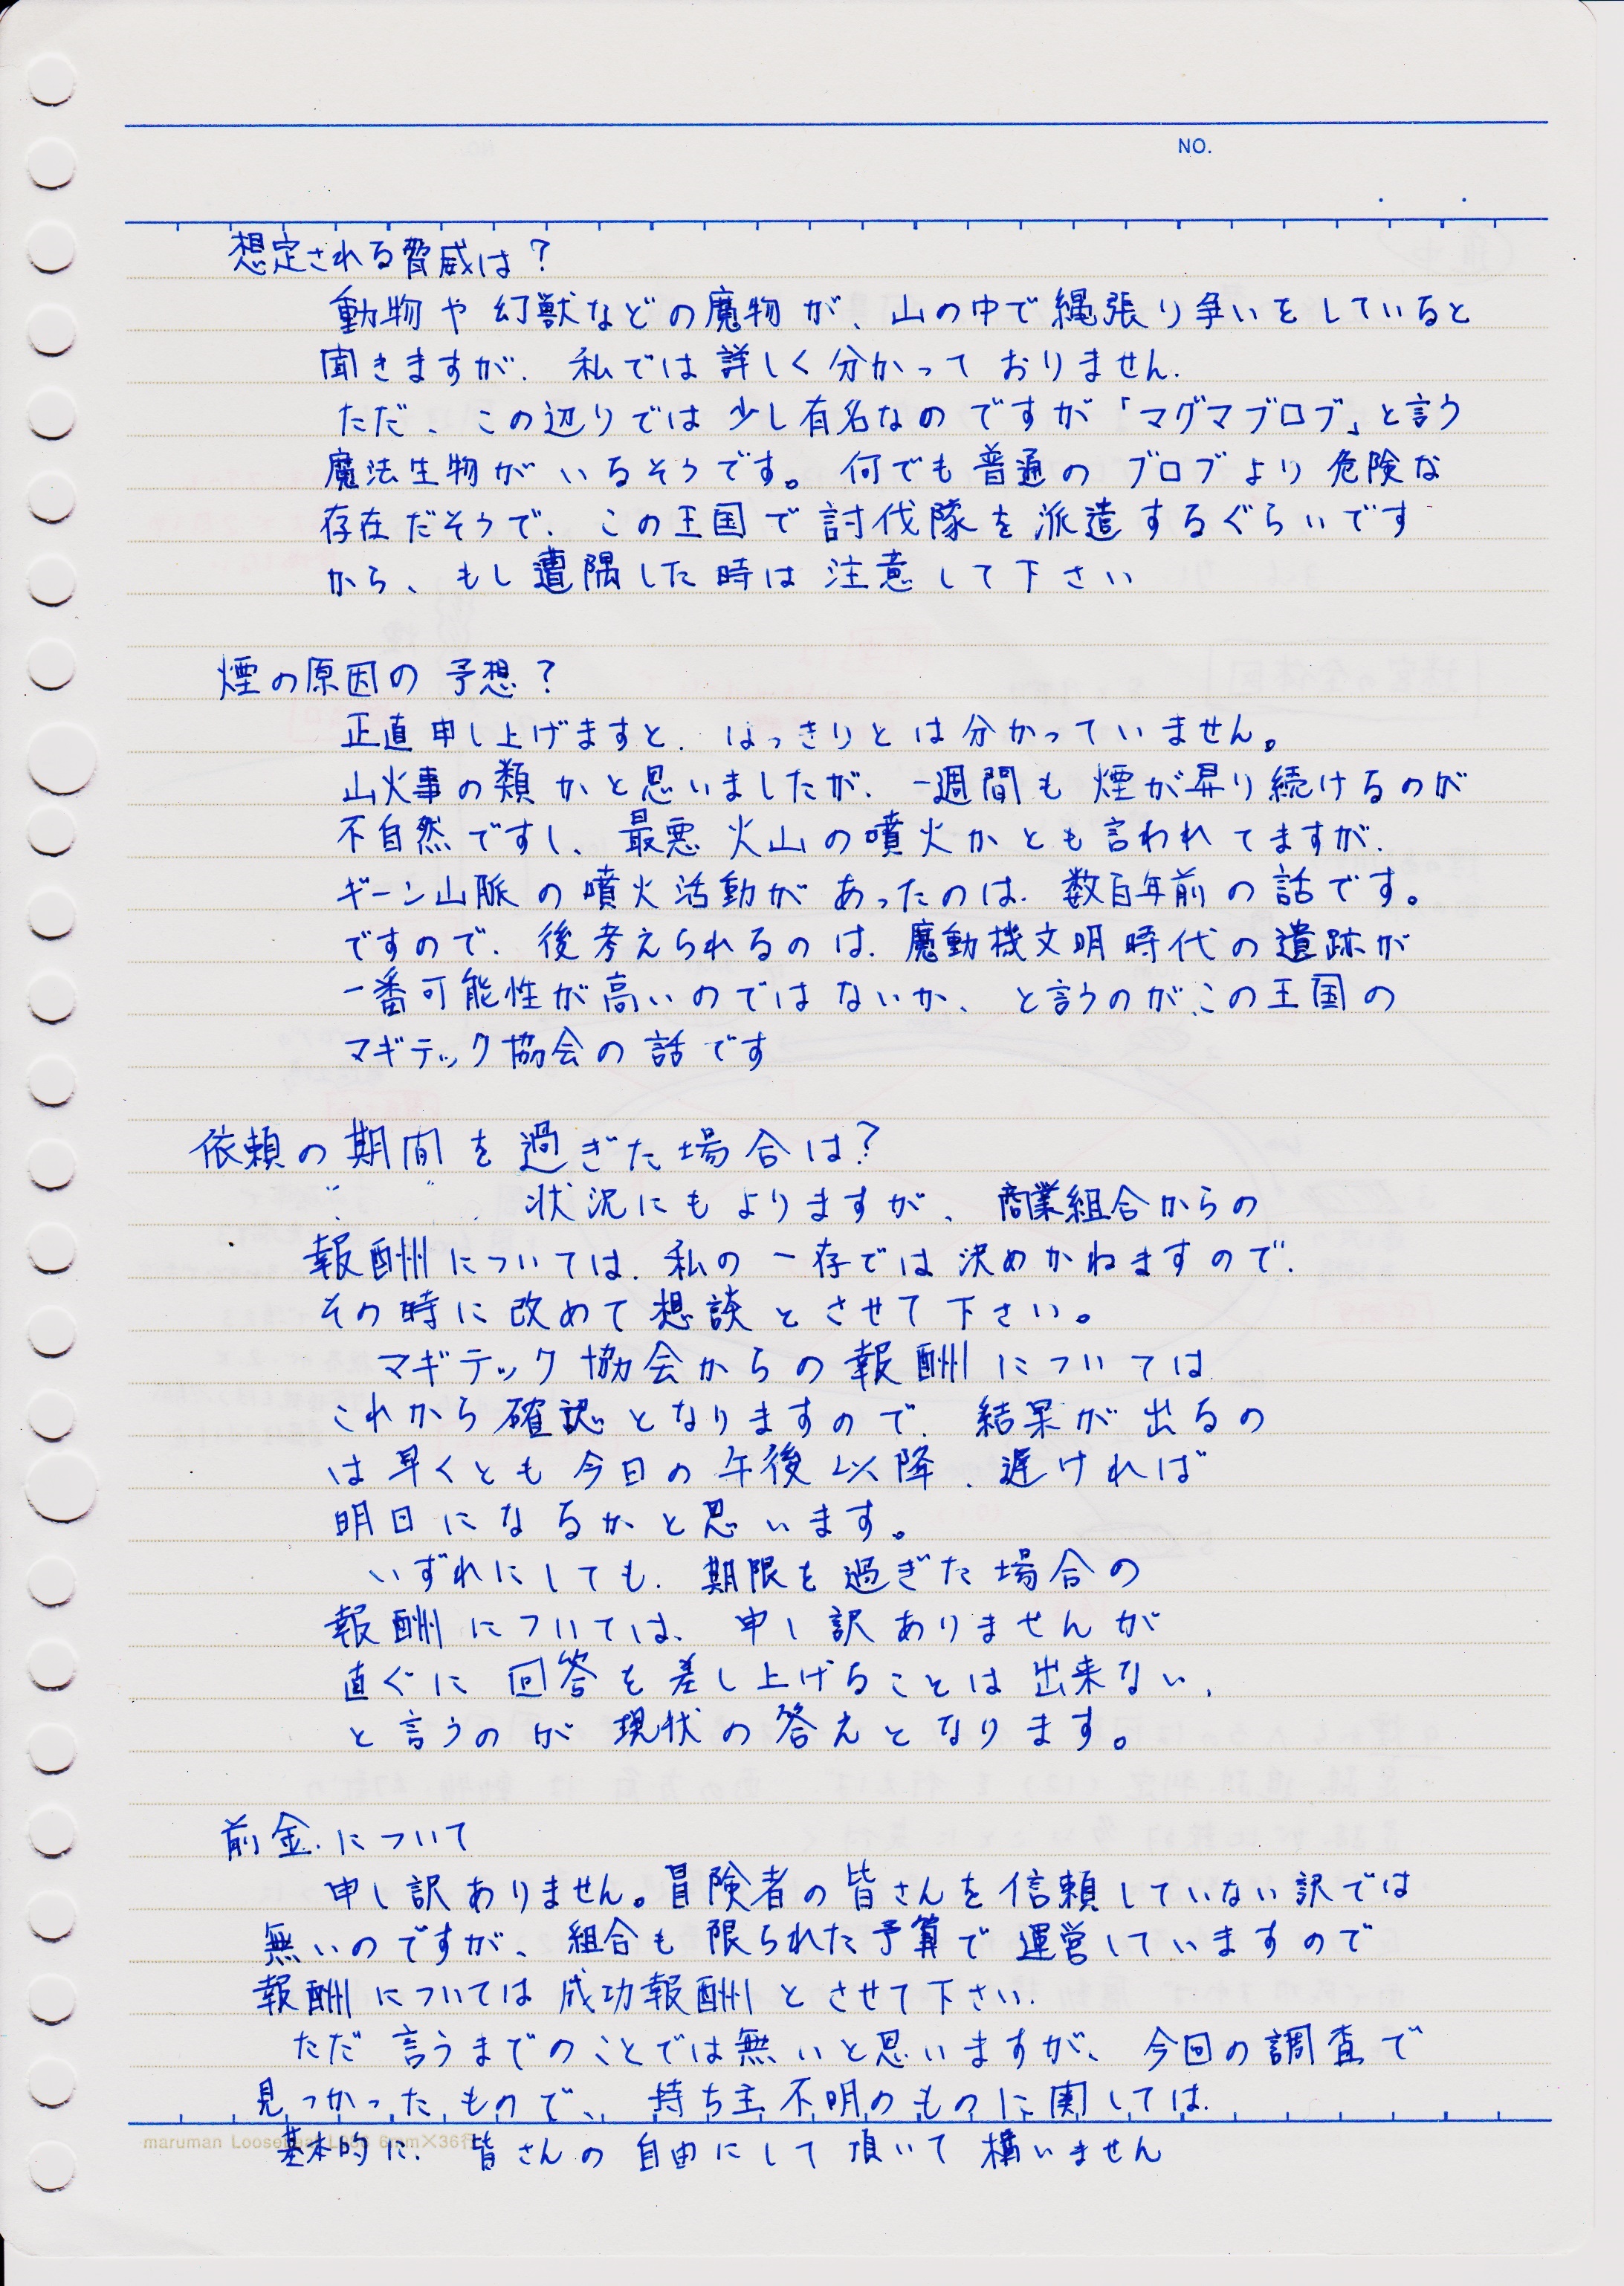 NO.
想定される脅威は?
動物や幻獣などの魔物が、山の中で縄張り争いをしていると
聞きますが、私では詳しく分かっておりません.
ただ、この辺りでは少し有名なのですが「マグマブロブ」と言う
魔法生物がいるそうです。何でも普通のブロブより危険な
存在だそうで、この王国で討伐隊を派遣するぐらいです
から、もし遭隅した時は注意して下さい
煙の原因の予想?
正直申し上げますと、はっきりとは分かっていません。
山火事の類かと思いましたが、一週間も煙が昇り続けるのが
不自然ですし、最悪火山の噴火かとも言われてますが、
ギーン山脈の噴火活動があったのは、数百年前の話です。
ですので、後考えられるのは、魔動機文明時代の遺跡が
一番可能性が高いのではないか、と言うのが、この王国の
マギテック協会の話です
依頼の期間を過ぎた場合は?
状況にもよりますが、商業組合からの
報酬については、私の一存では決めかねますので、
その時に改めて想談とさせて下さい。
マギテック協会からの報酬については
これから確認となりますので、結果が出るの
は早くとも今日の午後以降、遅ければ
明日になるかと思います。
いずれにしても、期限を過ぎた場合の
報酬については、申し訳ありませんが
直ぐに回答を差し上げることは出来ない、
と言うのが現状の答えとなります。
前金について
申し訳ありません。冒険者の皆さんを信頼していない訳では
無いのですが、組合も限られた予算で運営していますので
報酬については成功報酬とさせて下さい.
ただ言うまでのことでは無いと思いますが、今回の調査で
見つかったもので、持ち主不明のものに関しては、
maruman Looseleaf 6mm×36行
基本的に、皆さんの自由にして頂いて構いません